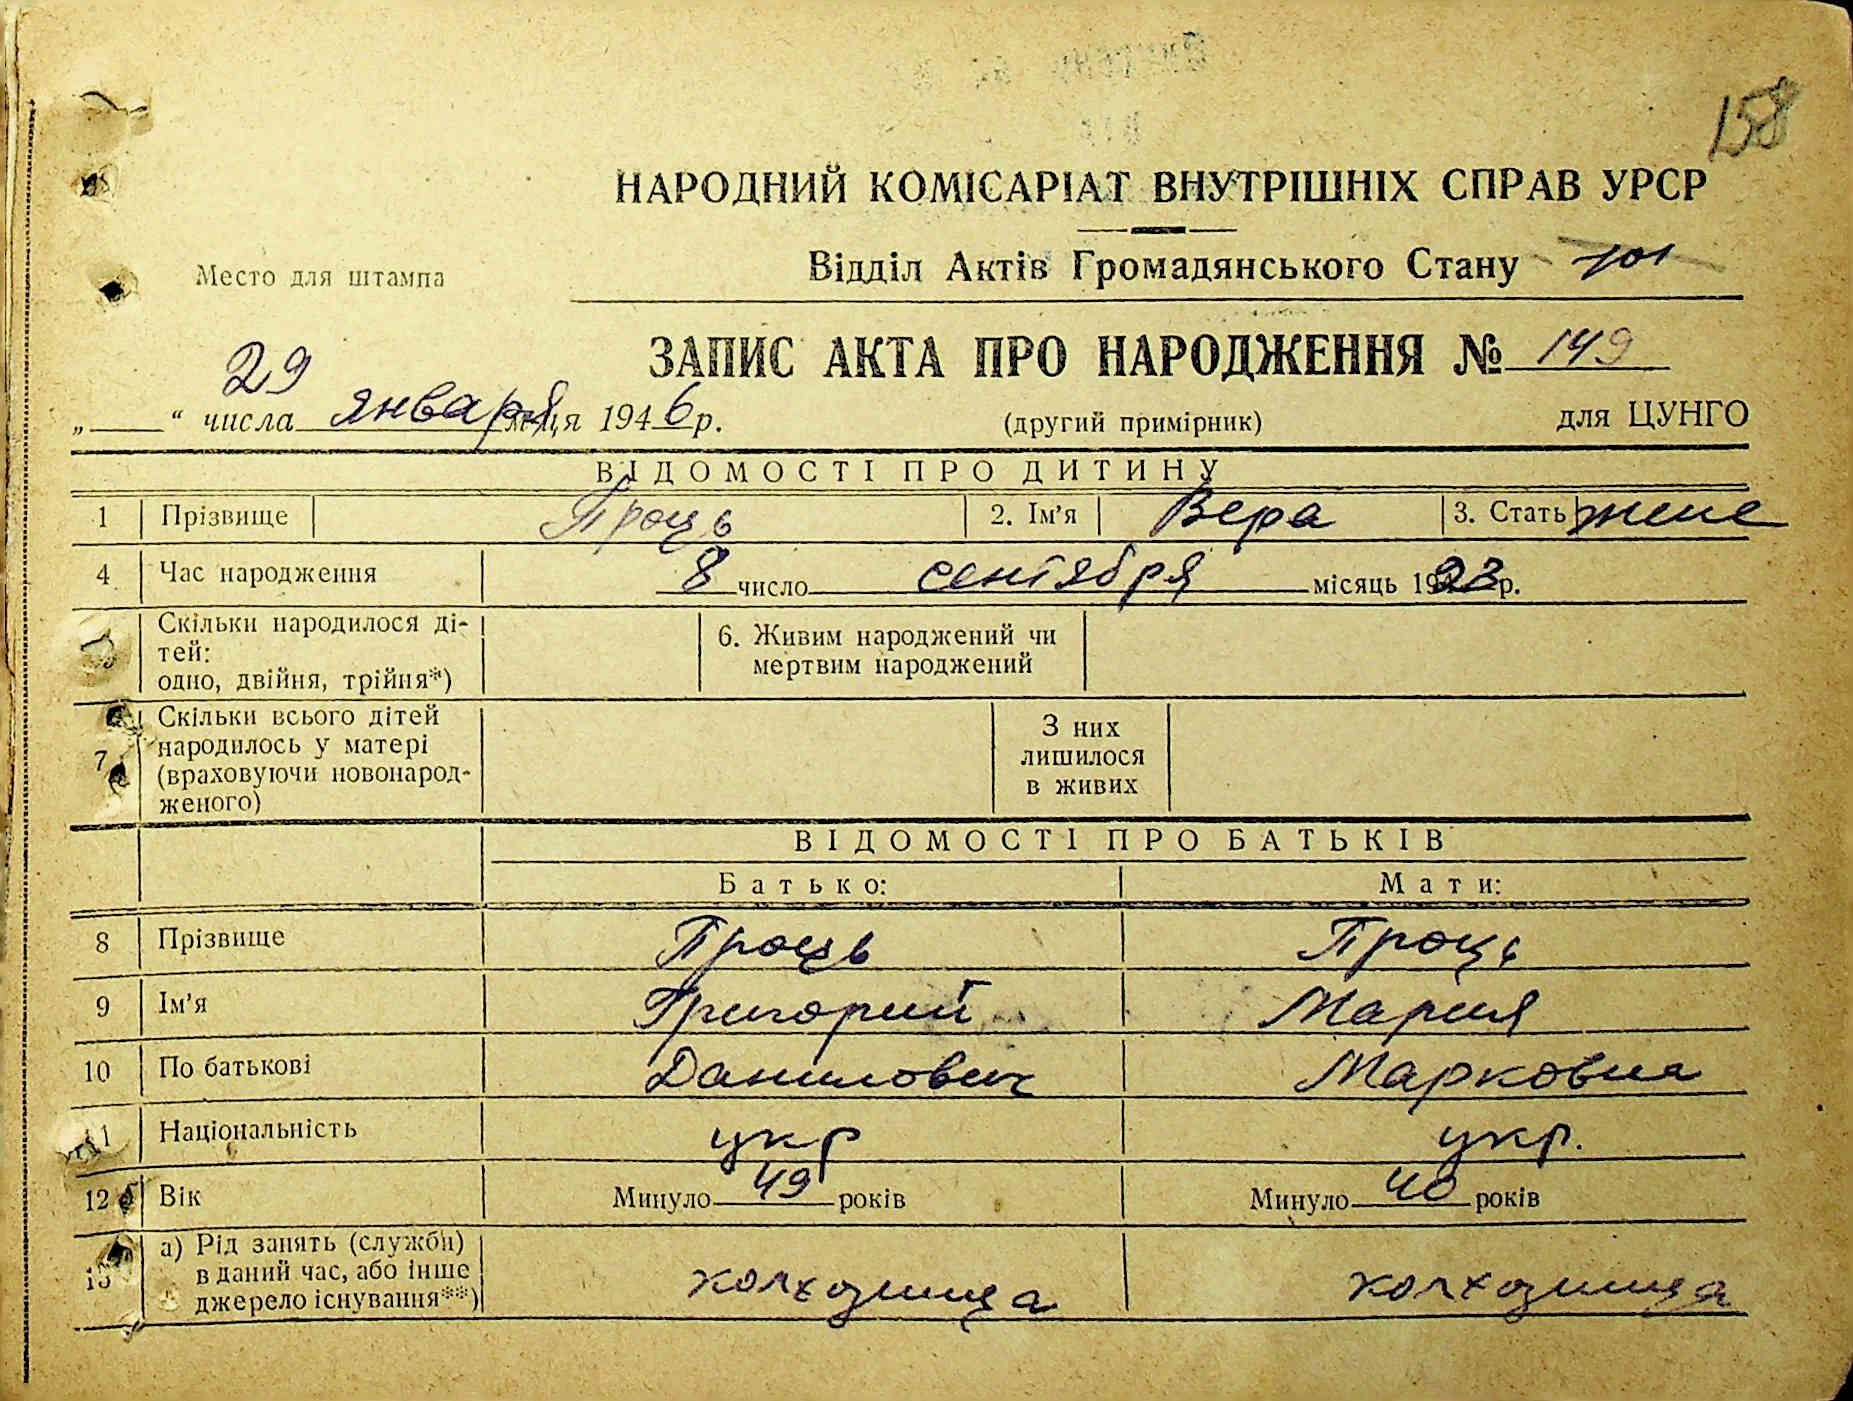 158
НАРОДНИЙ КОМІСАРІАТ ВНУТРІШНІХ СПРАВ УРСР
Место для штампа
Відділ Актів Громадянського Стану
ЗАПИС АКТА ПРО НАРОДЖЕННЯ № 149
„ 29 “ числа января місяця 1946 р.
(другий примірник)
для ЦУНГО
ВІДОМОСТІ ПРО ДИТИНУ
1 Прізвище Проць 2. Ім'я Вера 3. Стать жене
4 Час народження 8 число сентября місяць 1923 р.
Скільки народилося ді-
тей:
одно, двійня, трійня*)
6. Живим народжений чи
мертвим народжений
7 Скільки всього дітей
народилось у матері
(враховуючи новонарод-
женого)
З них
лишилося
в живих
ВІДОМОСТІ ПРО БАТЬКІВ
Батько: Мати:
8 Прізвище Проць Проць
9 Ім'я Григорий Мария
10 По батькові Данилович Марковна
11 Національність укр укр.
12 Вік Минуло 49 років Минуло 40 років
13 а) Рід занять (служби)
в даний час, або інше
джерело існування**)
колхозница колхозница